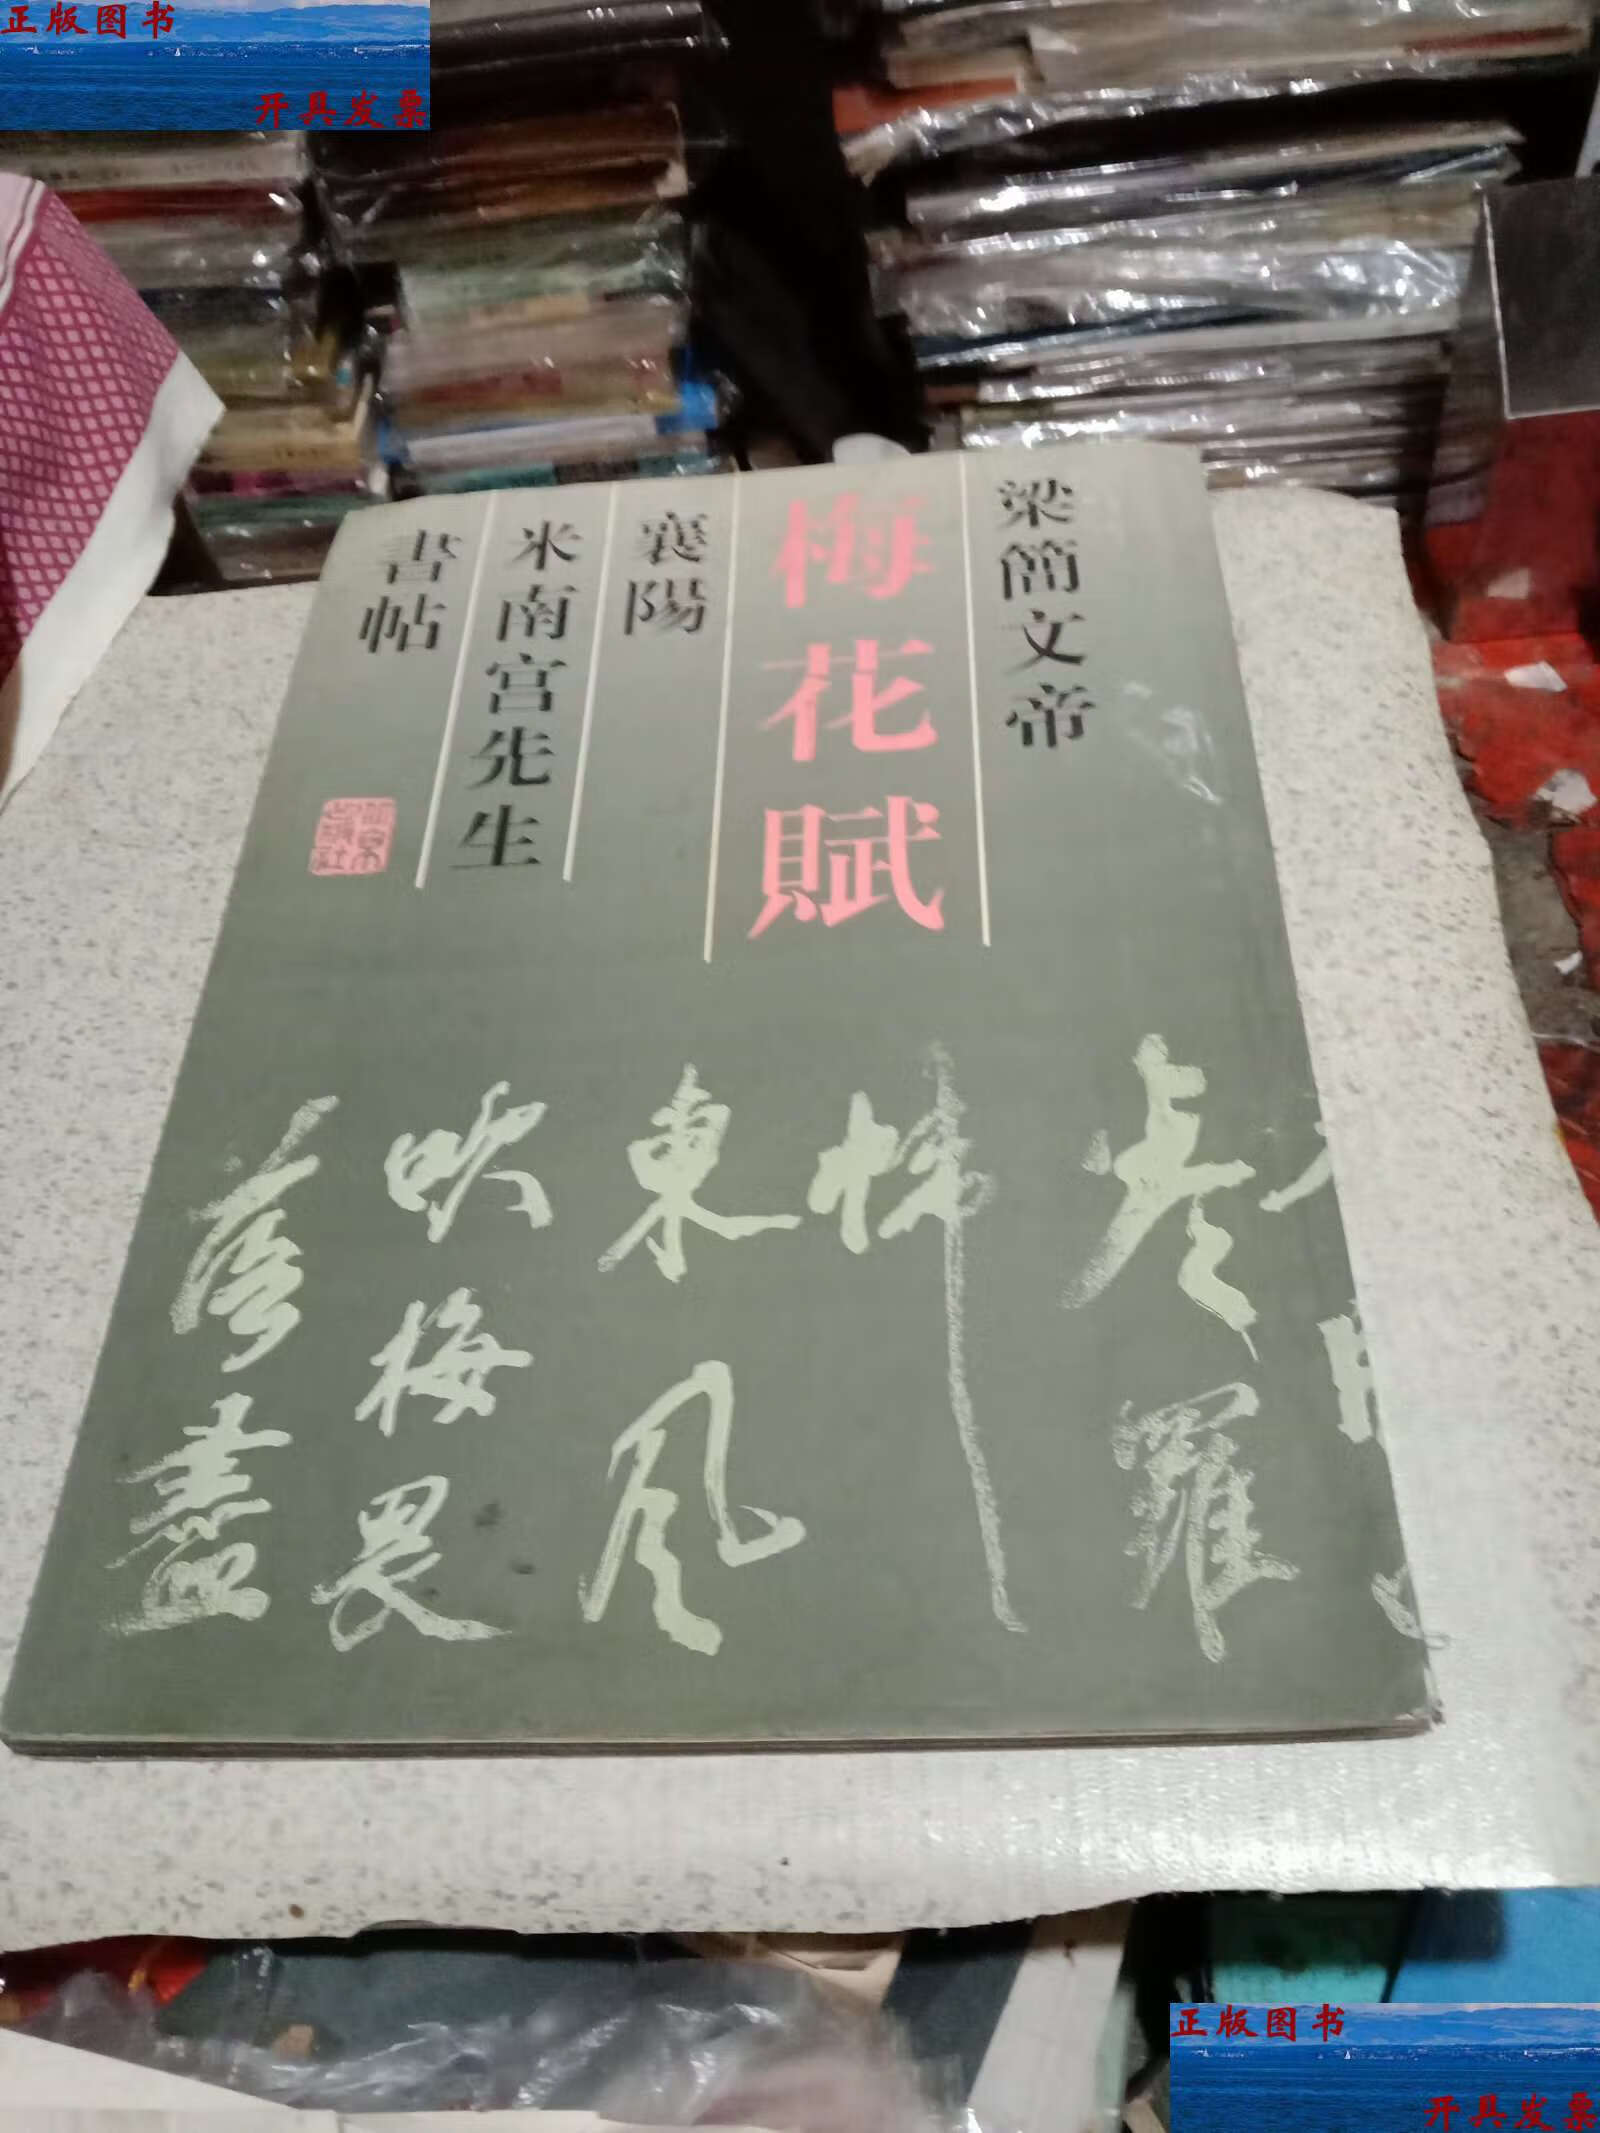 正版图书
开具发票
梁簡文帝
梅花賦
襄陽
米南宮先生
書帖
羅
東風
映梅畏
盡
正版图书
开具发票